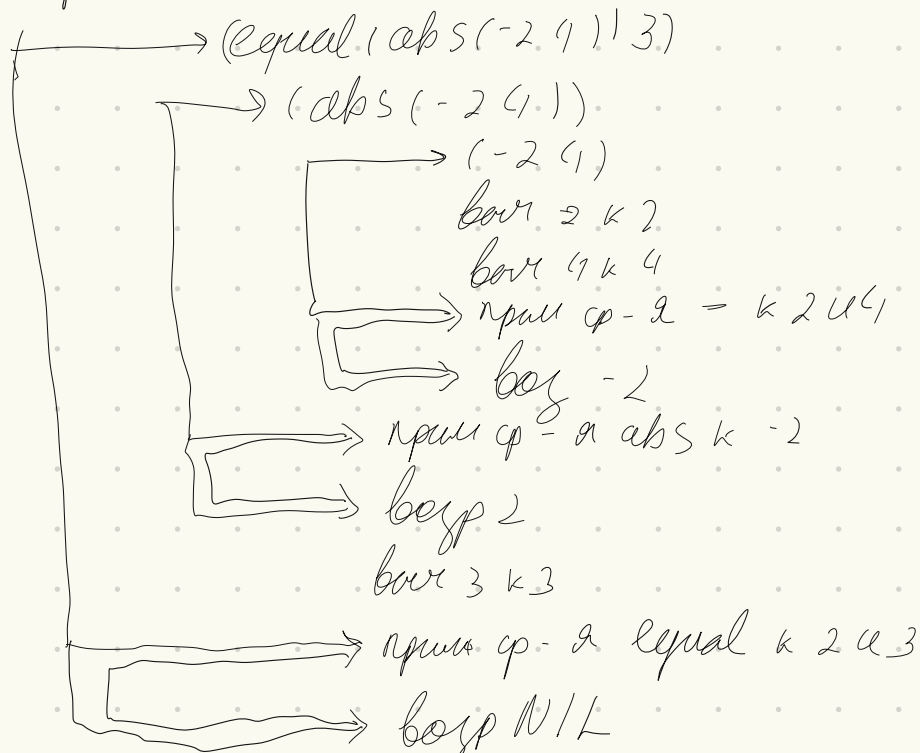 (equal (abs (- 2 4)) 3)
(abs (- 2 4))
(- 2 4)
выч 2 к 2
выч 4 к 4
прим ф-я - к 2 и 4
воз -2
прим ф-я abs к -2
возвр 2
выч 3 к 3
прим ф-я equal к 2 и 3
возвр NIL